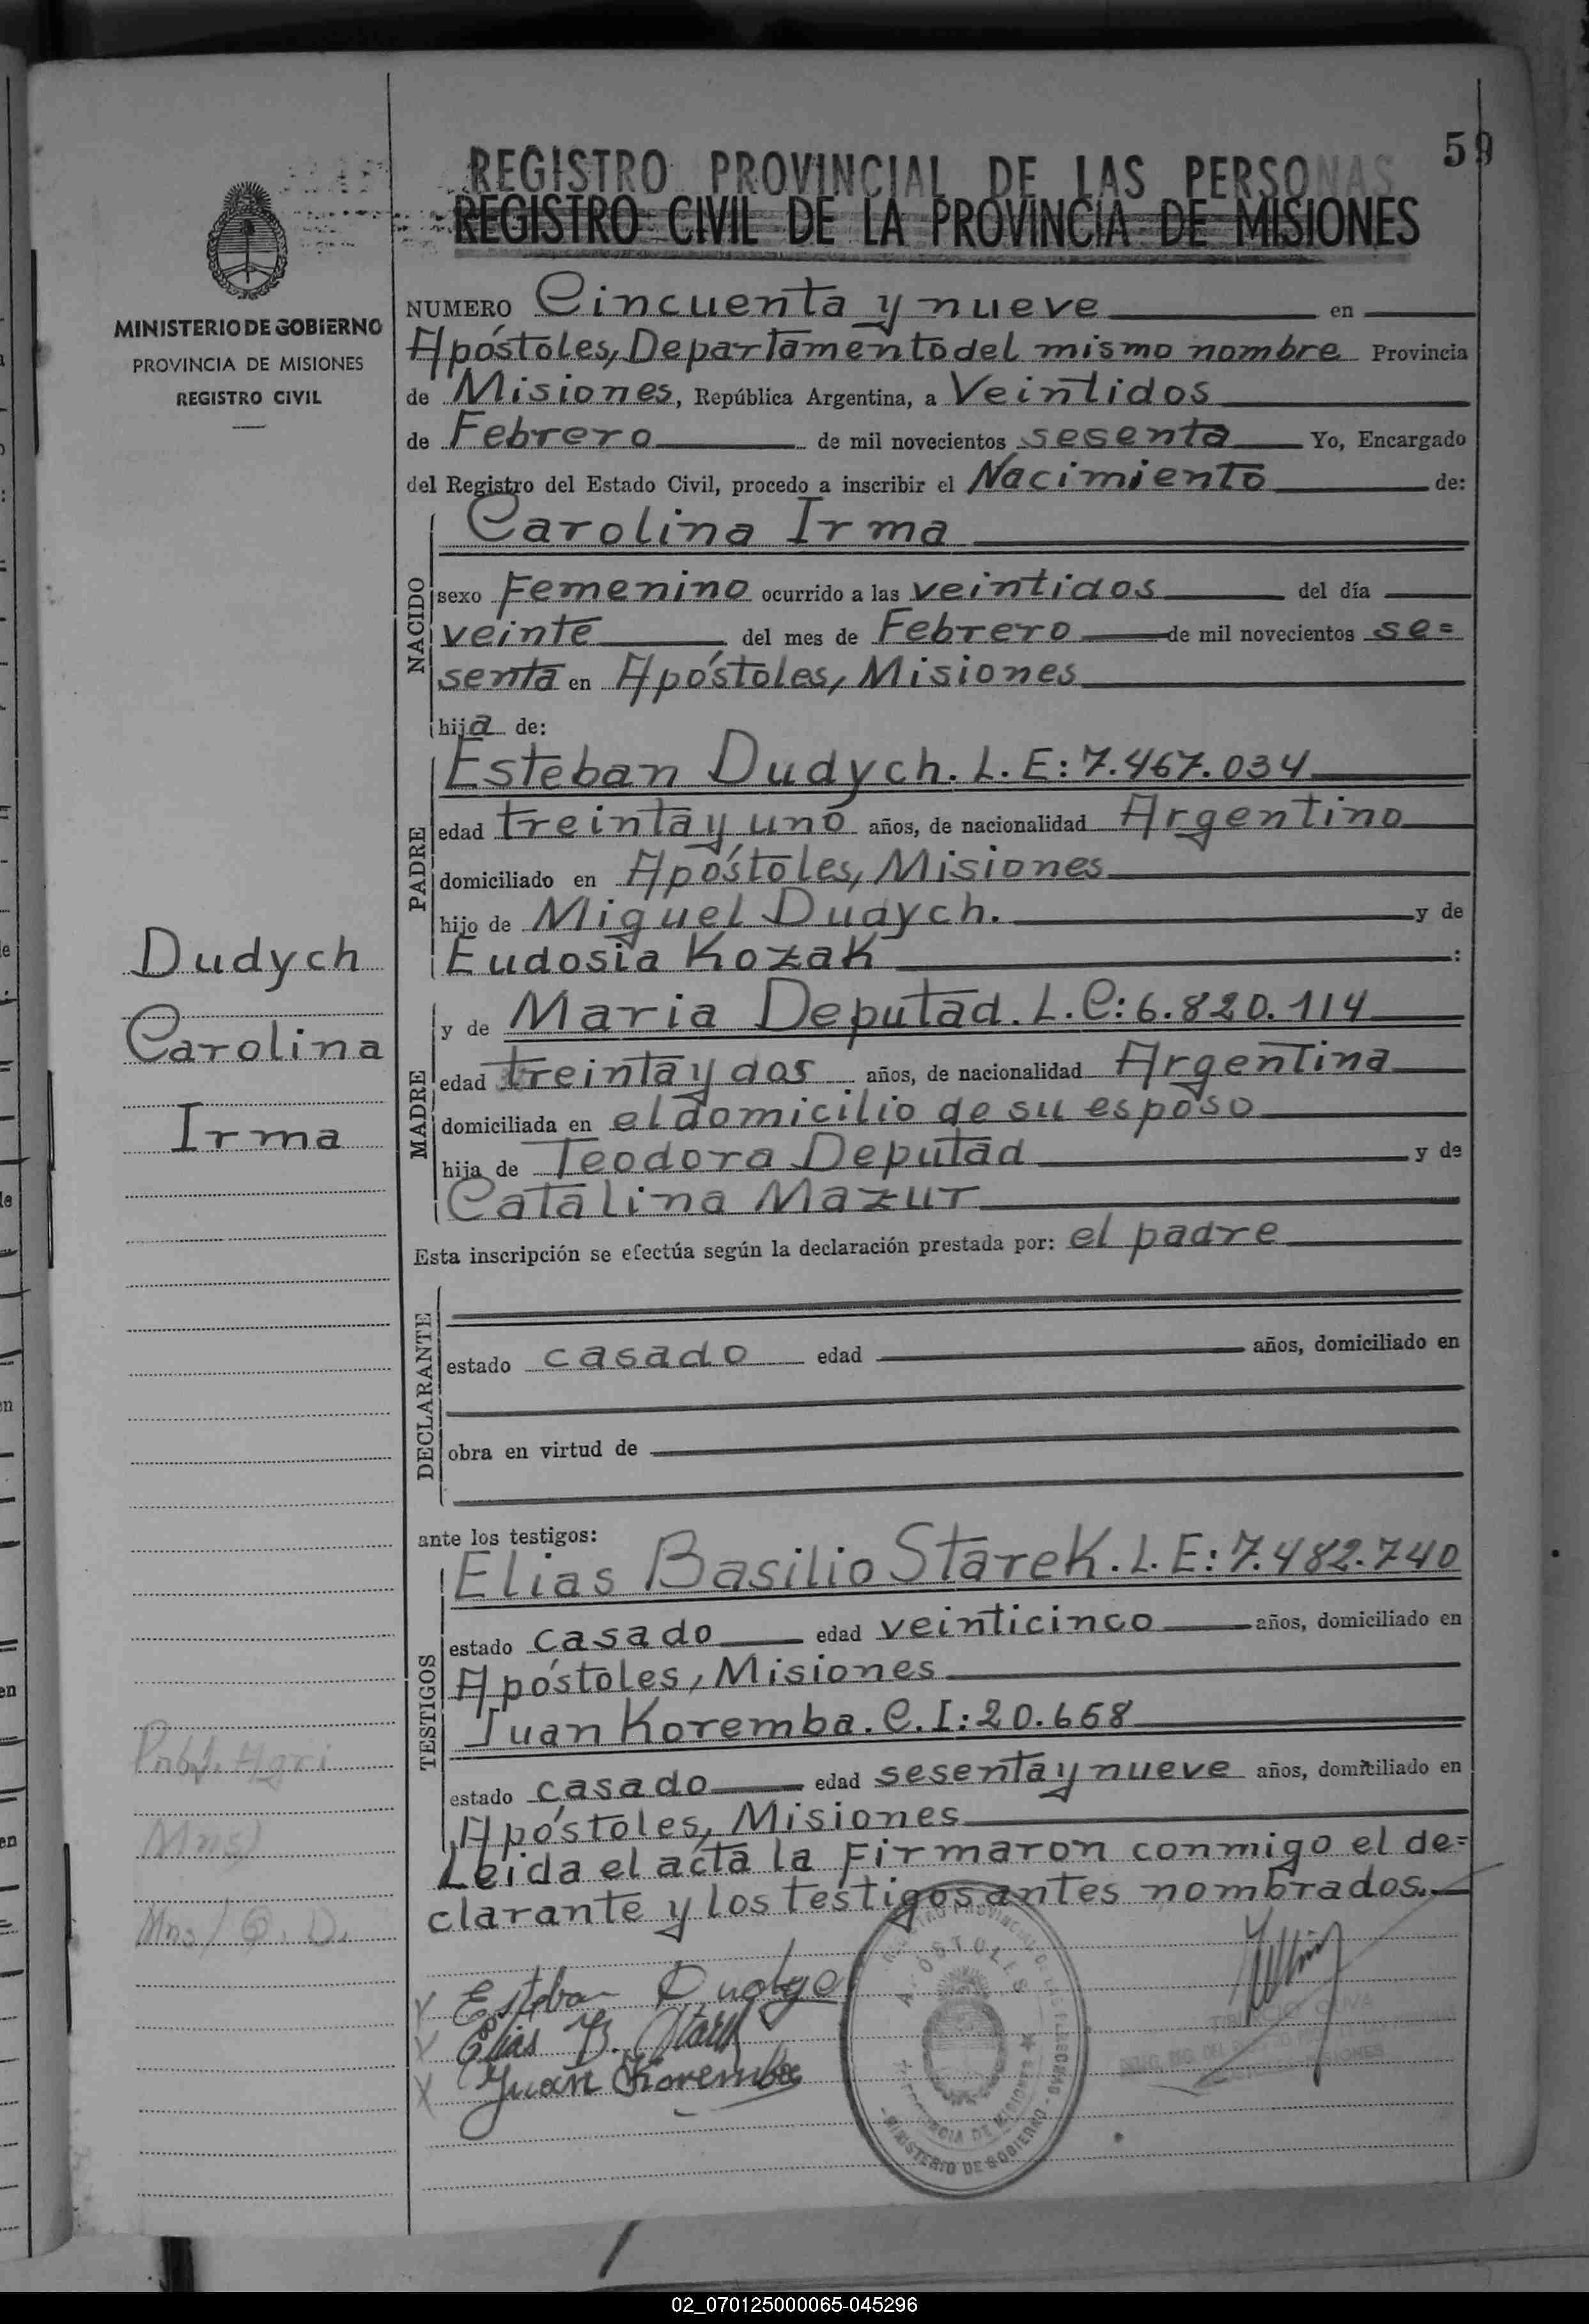 59
REGISTRO PROVINCIAL DE LAS PERSONAS
REGISTRO CIVIL DE LA PROVINCIA DE MISIONES
MINISTERIO DE GOBIERNO
PROVINCIA DE MISIONES
REGISTRO CIVIL
NUMERO Cincuenta y nueve en
Apóstoles, Departamento del mismo nombre Provincia
de Misiones, República Argentina, a Veintidos
de Febrero de mil novecientos sesenta Yo, Encargado
del Registro del Estado Civil, procedo a inscribir el Nacimiento de:
NACIDO
Carolina Irma
sexo Femenino ocurrido a las veintidos del día
veinte del mes de Febrero de mil novecientos se=
senta en Apóstoles, Misiones
hija de:
PADRE
Esteban Dudych. L. E: 7.467.034
edad treinta y uno años, de nacionalidad Argentino
domiciliado en Apóstoles, Misiones
hijo de Miguel Dudych. y de
Eudosia Kozak :
MADRE
y de Maria Deputad. L.C: 6.820.114
edad treinta y dos años, de nacionalidad Argentina
domiciliada en el domicilio de su esposo
hija de Teodora Deputad y de
Catalina Mazur
Esta inscripción se efectúa según la declaración prestada por: el padre
DECLARANTE
estado casado edad años, domiciliado en
obra en virtud de
ante los testigos:
TESTIGOS
Elias Basilio Starek. L. E: 7.482.740
estado casado edad veinticinco años, domiciliado en
Apóstoles, Misiones
Juan Koremba. C. I: 20.658
estado casado edad sesenta y nueve años, domiciliado en
Apóstoles, Misiones
Leida el acta la firmaron conmigo el de=
clarante y los testigos antes nombrados.
Dudych
Carolina
Irma
Mns)
Mns/ Q. D.
X Esteban Dudyc
X Elias B. Starek
X Juan Koremba
APOSTOLES
PROVINCIA DE MISIONES
MINISTERIO DE GOBIERNO
02_070125000065-045296